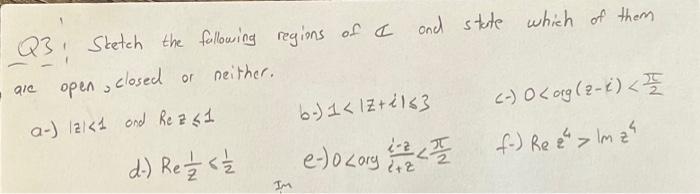 Q3: Sketch the following regions of ℂ and state which of them
are open, closed or neither.
a-) |z|<1 and Re z ≤ 1
b-) 1 < |z+i| ≤ 3
c-) 0 < arg (z-i) < π/2
d-) Re 1/z ≤ 1/2
e-) 0 < arg i-z/i+z < π/2
f-) Re z⁴ > Im z⁴
Im